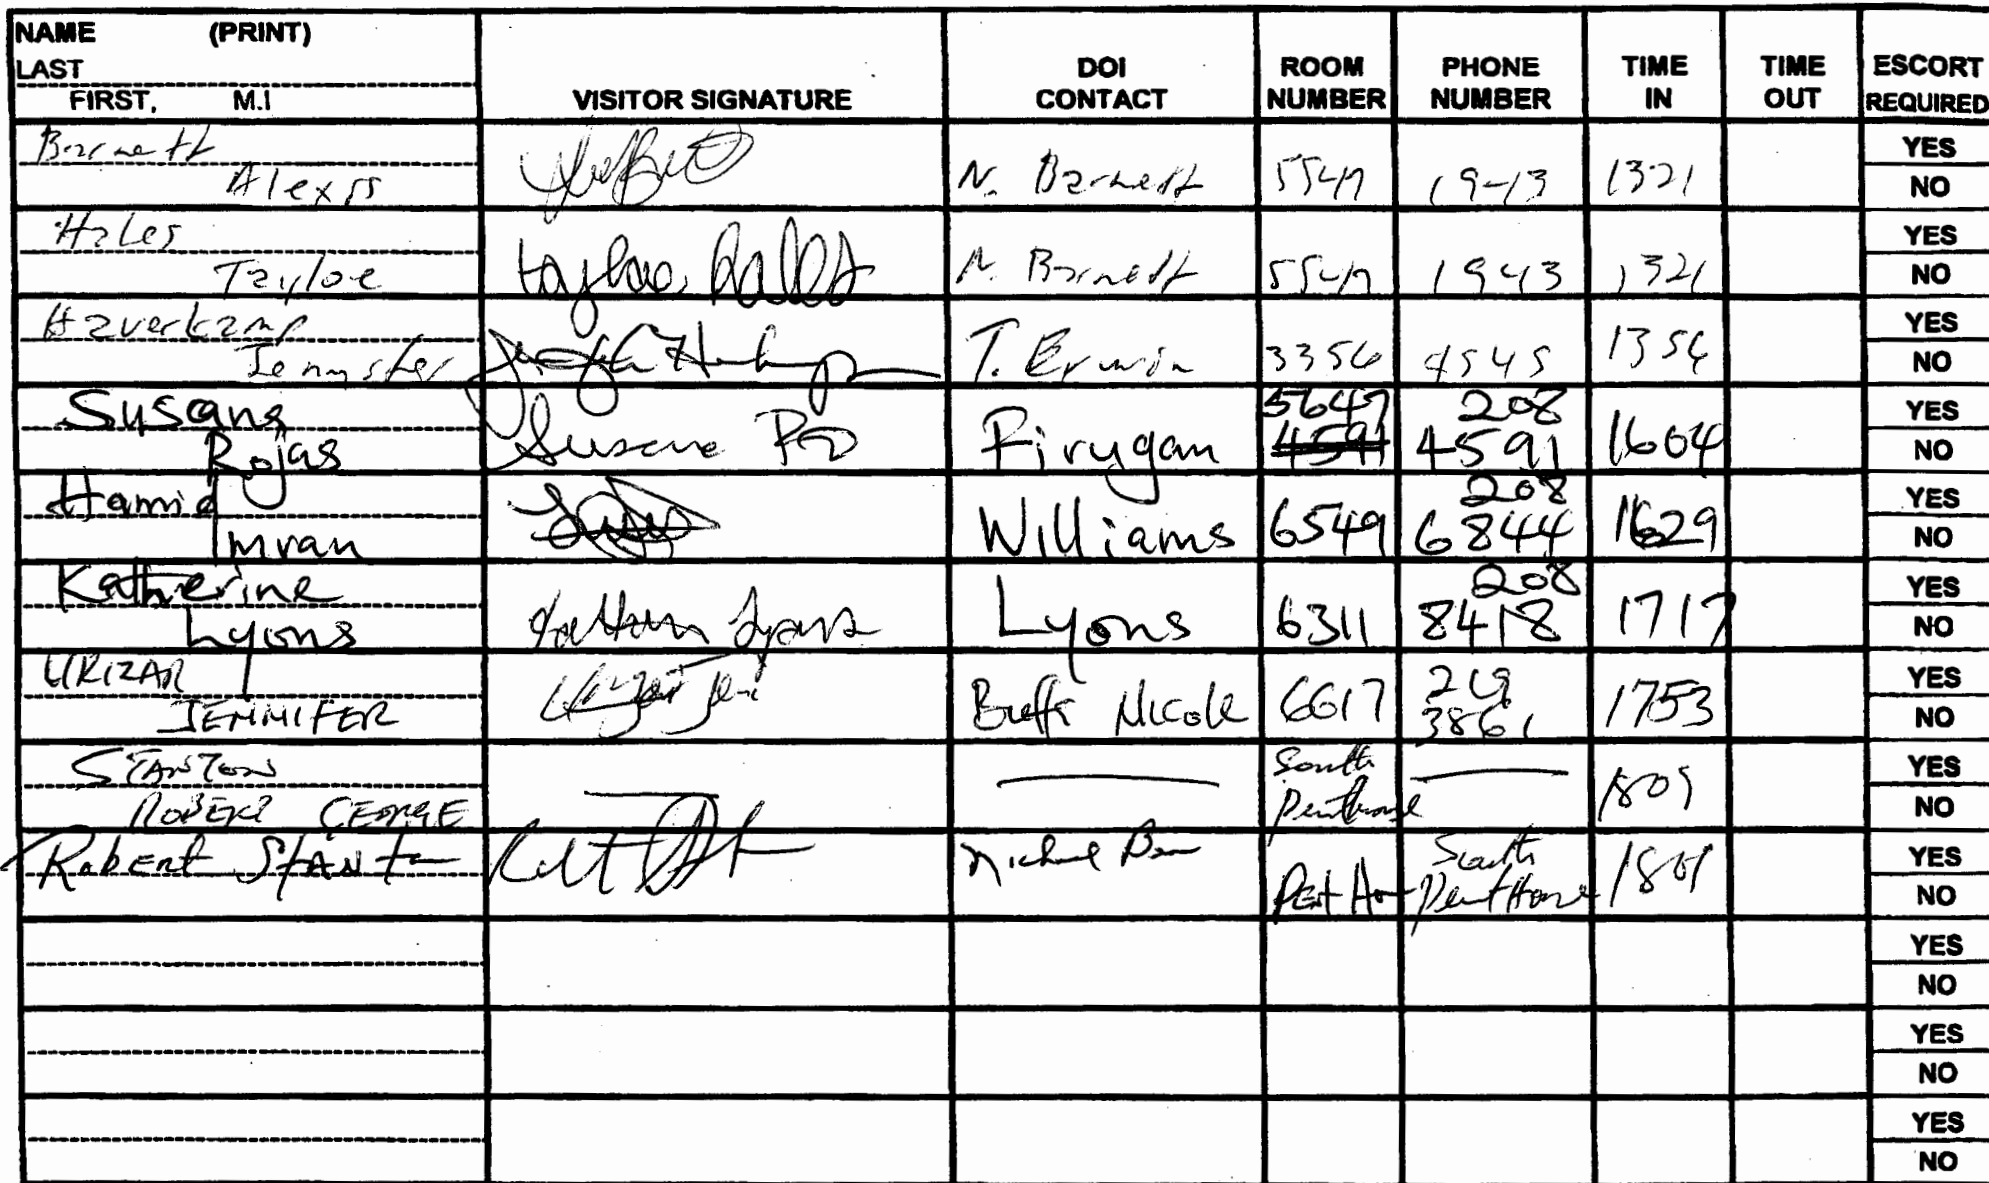 NAME (PRINT)
LAST
FIRST, M.I
VISITOR SIGNATURE
DOI CONTACT
ROOM NUMBER
PHONE NUMBER
TIME IN
TIME OUT
ESCORT REQUIRED
Barnett
Alexis
N. Barnett 1321
YES
NO
Hales
Tayloe
N. Barnett 1943 1321
YES
NO
Haverkamp
Jennifer
T. Erwin 3356 4545 1354
YES
NO
Susana 5647 208
Rojas Susana Firuzan 4591 4591 1604
YES
NO
Hamid 208
Imran Williams 6549 6844 1629
YES
NO
Katherine 208
Lyons Lyons 6311 8418 1717
YES
NO
URIZAR
JENNIFER Nicole 6617 3861 1753
YES
NO
STANTON South
ROBERT GEORGE Penthouse 1809
YES
NO
Robert Stanton Michael South
Pent Penthouse
YES
NO
YES
NO
YES
NO
YES
NO